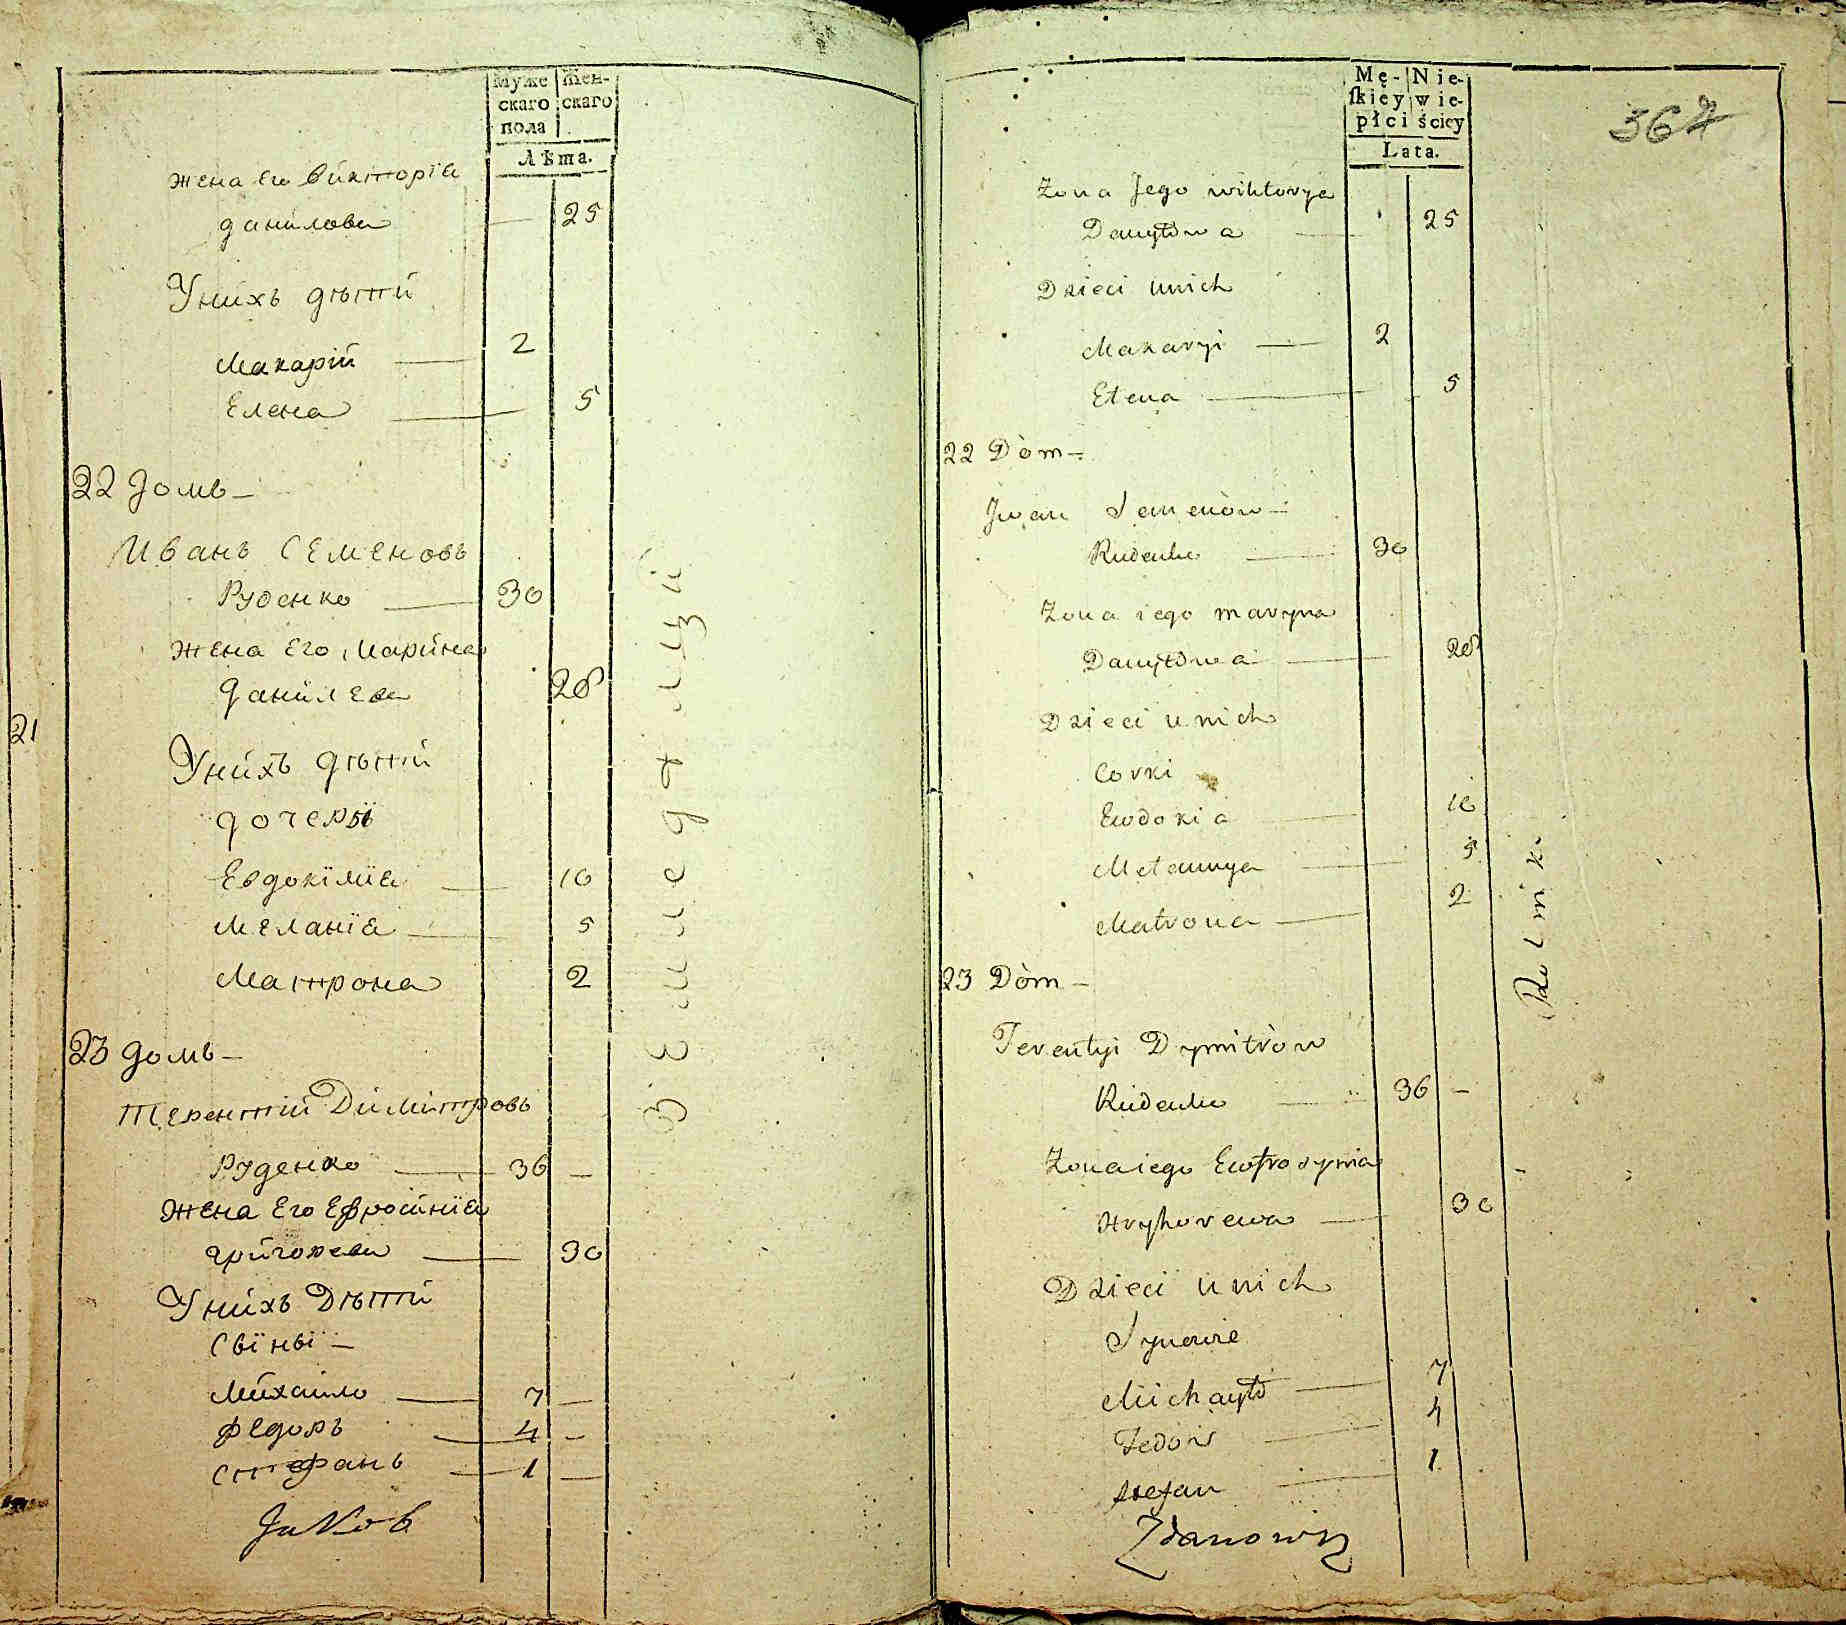 Муже
скаго
пола
Жен-
скаго
Лѣта.
Жена Его Викторїа
данилова — 25
Унихъ дѣтей
Макарїй — 2
Елена — 5
22 домъ —
Иванъ Семеновъ
Руденко — 30
Жена Его Марина
данилева 28
21
Унихъ дѣтей
дочеры
Евдокїмїа — 10
Меланїа — 5
Матрона 2
23 домъ —
Терентїй Димитровъ
Руденко — 36 —
Жена Его Ефросинїа
григорева — 30
Унихъ Дѣтей
Сыны —
Михайло — 7 —
Федоръ — 4 —
Стефанъ — 1 —
Jakob
Земледѣлцы
Mę-
ſkiey
płci
Nie-
wie-
ściey
Lata.
367
Zona Jego wiktorya
Danyłowa — 25
Dzieci unich
Makaryi — 2
Ełena — 5
22 Dòm —
Jwan Semenòw —
Rudenko — 30
Zona iego maryna
Danyłowa — 28
Dzieci unich
Corki
Ewdokia — 10
Mełannya — 5
Matrona — 2
23 Dòm —
Terentyi Dymitròw
Rudenko — 36 —
Zona iego Ewfrosynia
Hryhorewa — 30
Dzieci unich
Synowie
Michayło — 7
Fedor — 4
Stefan — 1
Zdanowicz
Rolniki